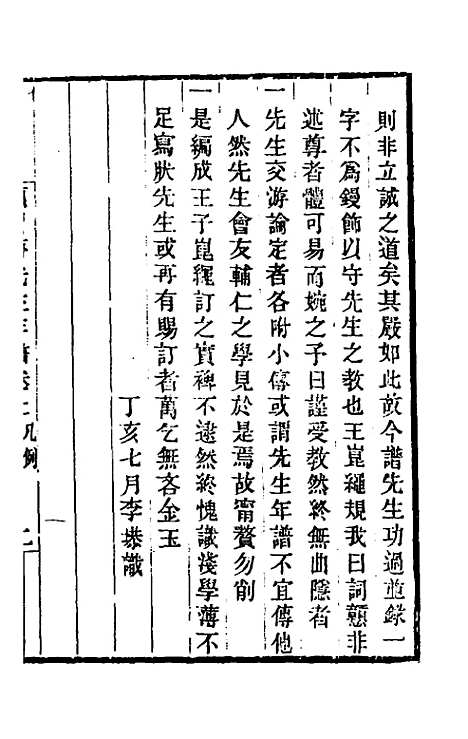 則非立誠之道矣其嚴如此故今譜先生功過並錄一
字不爲鏝飾以守先生之教也王崑繩規我曰詞戇非
述尊者體可易而婉之予曰謹受教然終無曲隱者
一先生交游論定者各附小傳或謂先生年譜不宜傳他
人然先生會友輔仁之學見於是焉故甯贅勿削
一是編成王子崑繩訂之實裨不逮然終愧識淺學薄不
足寫肰先生或再有賜訂者萬乞無吝金玉
丁亥七月李塨識
先生年譜卷上凡例